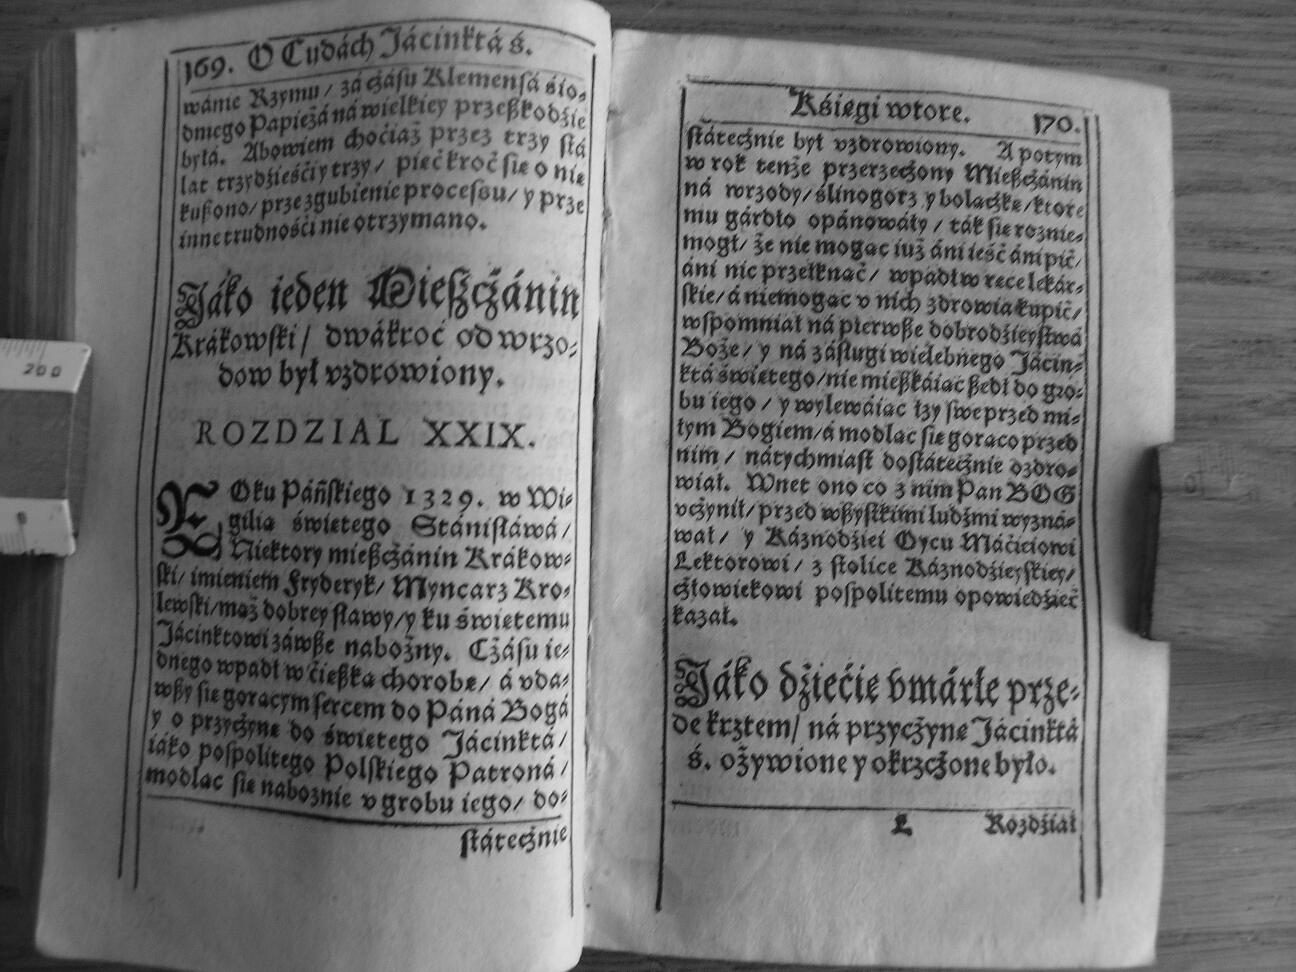 169. O Cudách Jácinktá ś.
wánie Rzymu / zá czásu Klemensá śio-
dmego Papieżá ná wielkiey przeßkodzie
byłá. Abowiem choćiaż przez trzy stá
lat trzydzieśći y trzy / pięć kroć się o nię
kußono / prze zgubienie processu / y prze
inne trudnośći nie otrzymano.
Jáko ieden Mieszczánin
Krákowski / dwákroć od wrzo-
dow był vzdrowiony.
ROZDZIAL XXIX.
ROku Páńskiego 1329. w Wi-
gilią świętego Stánisłáwá /
Niektory mießczánin Krákow-
ski / imieniem Fryderyk / Myncarz Kro-
lewski / mąż dobrey sławy / y ku świętemu
Jácinktowi záwße nabożny. Czásu ie-
dnego wpadł w ćięßką chorobę / á vda-
wßy się gorącym sercem do Páná Bogá
y o przyczynę do świętego Jácinktá /
iáko pospolitego Polskiego Patroná /
modląc się nabożnie v grobu iego / do-
státecznie
Kśięgi wtore. 170.
státecznie był vzdrowiony. A potym
w rok tenże przerzeczony Mießczánin
ná wrzody / ślinogorz y bolączkę / ktore
mu gárdło opánowáły / ták się roznie-
mogł / że nie mogąc iuż áni ieść áni pić /
áni nic przełknąć / wpadł w ręce lekár-
skie / á niemogąc v nich zdrowia kupić /
wspomniał ná pierwße dobrodzieystwá
Boże / y ná zásługi wielebnego Jácin-
ktá świętego / nie mießkáiąc ßedł do gro-
bu iego / y wylewáiąc łzy swe przed mi-
łym Bogiem / á modląc się gorąco przed
nim / nátychmiast dostátecznie ozdro-
wiał. Wnet ono co z nim Pan BOG
vczynił / przed wßystkimi ludźmi wyzná-
wał / y Káznodźiei Oycu Máćieiowi
Lektorowi / z stolice Káznodźieyskiey /
człowiekowi pospolitemu opowiedźieć
kazał.
Jáko dźiećię vmárłe prze-
de krztem / ná przyczynę Jácinktá
ś. ożywione y okrzczone było.
L Rozdźiał
200
0